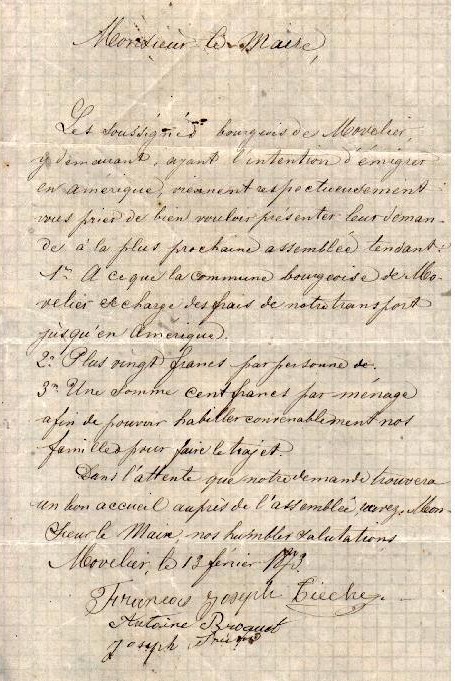 Monsieur le Maire,
Les soussignés bourgeois de Movelier,
y demeurant, ayant l'intention d'émigrer
en amérique, viennent respectueusement
vous prier de bien vouloir présenter leur deman-
de à la plus prochaine assemblée tendant:
1° A ce que la commune bourgeoise de Mo-
velier se charge des frais de notre transport
jusqu'en Amérique.
2° Plus vingt francs par personne
3° Une somme cent francs par ménage
afin de pouvoir habiller convenablement nos
familles pour faire le trajet.
Dans l'attente que notre demande trouvera
un bon accueil auprès de l'assemblée Mon-
sieur le Maire, nos humbles salutations
Movelier, le 12 février
François Joseph Lièche
Antoine Broquet
Joseph